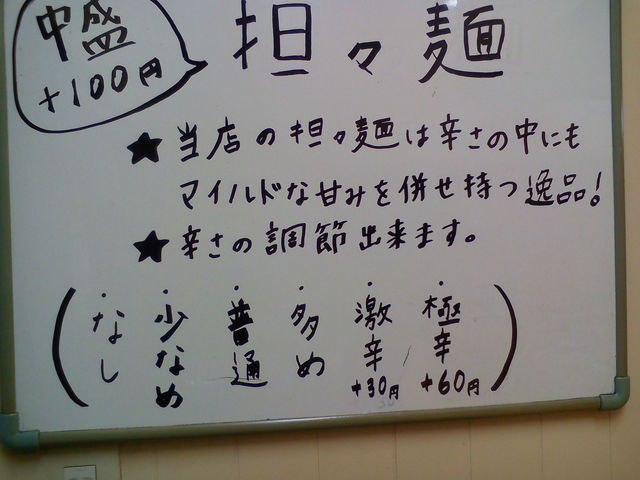 中盛
+100円
担々麺
★当店の担々麺は辛さの中にも
マイルドな甘みを併せ持つ逸品!
★辛さの調節出来ます。
(・なし
・少なめ
・普通
・多め
・激辛
+30円
・極辛
+60円)